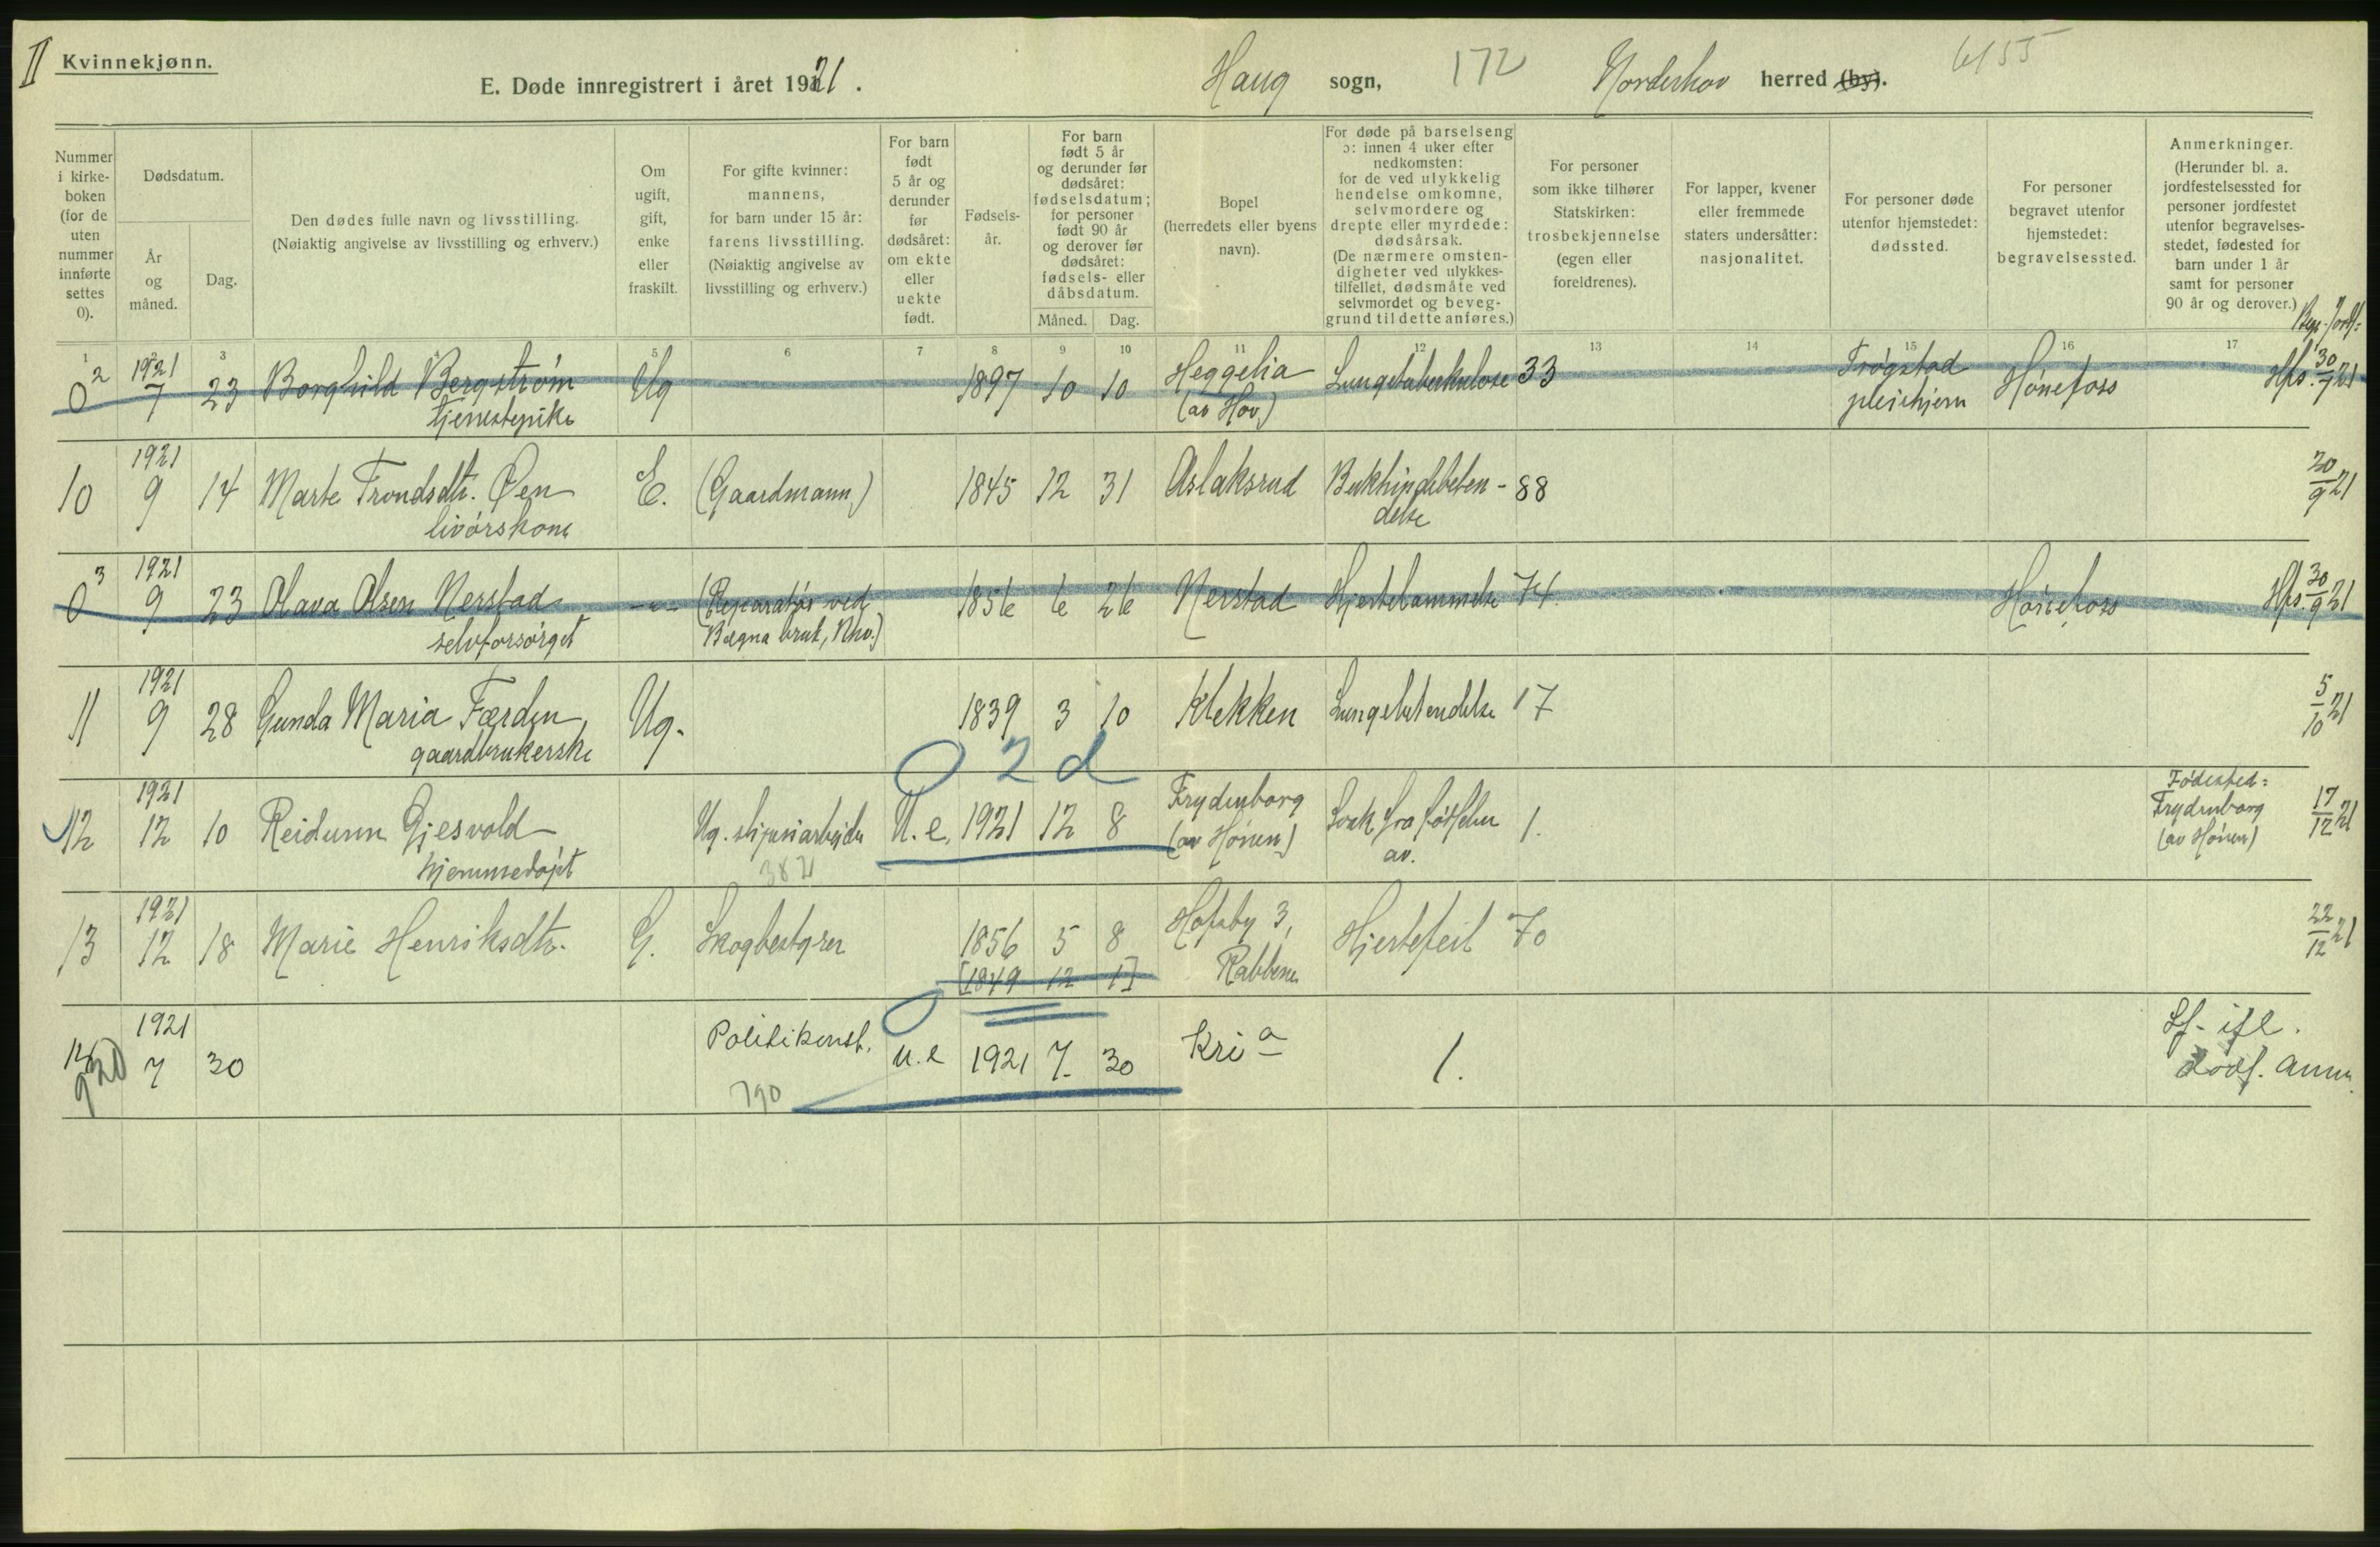 II Kvinnekjønn.
E. Døde innregistrert i året 1921. Haug sogn, 172 Norderhov herred (by). 6155
Nummer i kirke-boken (for de uten nummer innførte settes 0).
Dødsdatum.
År og måned.
Dag.
Den dødes fulle navn og livsstilling.
(Nøiaktig angivelse av livsstilling og erhverv.)
Om ugift, gift, enke eller fraskilt.
For gifte kvinner: mannens, for barn under 15 år: farens livsstilling.
(Nøiaktig angivelse av livsstilling og erhverv.)
For barn født 5 år og derunder før dødsåret: om ekte eller uekte født.
Fødsels-år.
For barn født 5 år og derunder før dødsåret: fødselsdatum; for personer født 90 år og derover før dødsåret: fødsels- eller dåbsdatum.
Måned. Dag.
Bopel (herredets eller byens navn).
For døde på barselseng ɔ: innen 4 uker efter nedkomsten: for de ved ulykkelig hendelse omkomne, selvmordere og drepte eller myrdede: dødsårsak.
(De nærmere omsten-digheter ved ulykkes-tilfellet, dødsmåte ved selvmordet og beveg-grund til dette anføres.)
For personer som ikke tilhører Statskirken: trosbekjennelse (egen eller foreldrenes).
For lapper, kvener eller fremmede staters undersåtter: nasjonalitet.
For personer døde utenfor hjemstedet: dødssted.
For personer begravet utenfor hjemstedet: begravelsessted.
Anmerkninger.
(Herunder bl. a. jordfestelsessted for personer jordfestet utenfor begravelses-stedet, fødested for barn under 1 år samt for personer 90 år og derover.)
1 2 3 4 5 6 7 8 9 10 11 12 13 14 15 16 17
0 2 1921 7 23 Borghild Bergstrøm Ug 1897 10 10 Heggelia Lungetuberkulose 33 Trøgstad Hønefoss Hfs. 30/7 21
tjenestepike (av Hov) pleiehjem
10 1921 9 14 Marte Trondsdtr. Øen E. (Gaardmann) 1845 12 31 Aslaksrud Bukhindebeten- 88 20/9 21
livørskone delse
0 3 1921 9 23 Olava Olsen Nerstad -"- (Reparatør ved 1856 6 26 Nerstad Hjertelammelse 74 Hønefoss Hfs. 30/9 21
selvforsørget Bægna bruk, Nhv.)
11 1921 9 28 Gunda Maria Færden, Ug. 1839 3 10 Klekken Lungebetendelse 17 5/10 21
gaardbrukerske
0 2 d
12 1921 12 10 Reidunn Gjesvold Ug. sliperiarbeider U.e. 1921 12 8 Frydenborg Svak fra fødselen 1. Fødested: Frydenborg 17/12 21
hjemmedøpt 382 (av Hønen) av. (av Hønen)
13 1921 12 18 Marie Henriksdtr. G. Skogbestyrer 1856 5 8 Hofsby 3, Hjertefeil 70 22/12 21
[1849 12 1] Rabbene
1921 7 30 Politikonst. u.e 1921 7 30 Kria 1. Lf. ifl.
790 dødf. anm.